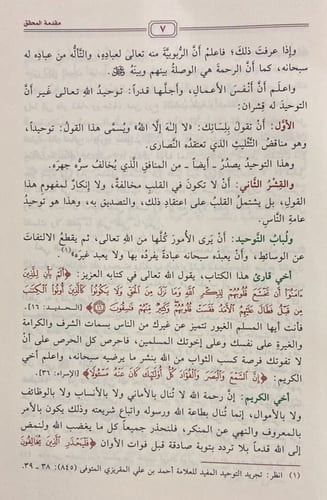 مقدمة المحقق
٧
وإذا عرفتَ ذلك؛ فاعلم أنَّ الربوبيَّة منه تعالى لعباده، والتَّأَلُّه من عباده له
سبحانه، كما أنَّ الرحمة هي الوصلةُ بينهم وبينهُ ﷻ.
واعلَم أنَّ أَنْفَسَ الأعمالِ، وأجلَّها قدراً: توحيدُ اللهِ تعالى غير أنَّ
التوحيدَ له قِشران:
الأوَّل: أنْ تقولَ بِلسانِك: «لا إلهَ إلَّا اللهُ» ويُسمَّى هذا القولُ: توحيداً،
وهو مناقضُ التَّثليثِ الذي تعتقدُه النَّصارى.
وهذا التوحيد يصدُرُ ـ أيضاً ـ من المنافقِ الَّذي يُخالفُ سرُّه جهرَه.
والقِشْرُ الثَّاني: أنْ لا تكونَ في القلب مخالفةٌ، ولا إنكارٌ لمفهوم هذا
القولِ، بل يشتملُ القلبُ على اعتقادِ ذلك، والتصديق به، وهذا هو توحيدُ
عامةِ النَّاس.
ولُبابُ التَّوحيد: أنْ يَرى الأمورَ كُلَّها من اللهِ تعالى، ثم يقطعُ الالتفات
عن الوسائطِ، وأنْ يعبدَه سبحانه عبادةً يفردُه بها ولا يعبد غيرَه»(١)
أخي قارئَ هذا الكتاب، يقول الله تعالى في كتابه العزيز: ﴿أَلَمْ يَأْنِ لِلَّذِينَ
ءَامَنُوٓا۟ أَن تَخْشَعَ قُلُوبُهُمْ لِذِكْرِ ٱللَّهِ وَمَا نَزَلَ مِنَ ٱلْحَقِّ وَلَا يَكُونُوا۟ كَٱلَّذِينَ أُوتُوا۟ ٱلْكِتَٰبَ
مِن قَبْلُ فَطَالَ عَلَيْهِمُ ٱلْأَمَدُ فَقَسَتْ قُلُوبُهُمْ وَكَثِيرٌ مِّنْهُمْ فَٰسِقُونَ ١٦﴾ [الـحـديـد: ١٦].
فأنت أيها المسلم الغيور تتميز عن غيرك من الناس بسمات الشرف والكرامة
والغيرة على نفسك وعلى إخوتك المسلمين، فاحرص كل الحرص على أن
لا تفوتك فرصة كسب الثواب من الله بنشر ما يرضيه سبحانه، واعلم أخي
الكريم: ﴿إِنَّ ٱلسَّمْعَ وَٱلْبَصَرَ وَٱلْفُؤَادَ كُلُّ أُو۟لَٰٓئِكَ كَانَ عَنْهُ مَسْـُٔولًا﴾ [الإسراء: ٣٦].
أخي الكريم: إنَّ رحمة الله لا تُنال بالأماني ولا بالأنساب ولا بالوظائف
ولا بالأموال، إنما تُنال بطاعة الله ورسوله واتباع شريعته وذلك يكون بالأمر
بالمعروف والنهي عن المنكر، فلنحذر جميعاً كل ما يغضب الله ولنمض
إلى الله قُدماً بلا تردد بتوبة صادقة قبل فوات الأوان ﴿فَلْيَحْذَرِ ٱلَّذِينَ يُخَالِفُونَ
(١) انظر: تجريد التوحيد المفيد للعلامة أحمد بن علي المقريزي المتوفى (٨٤٥): ٣٨ ـ ٣٩.